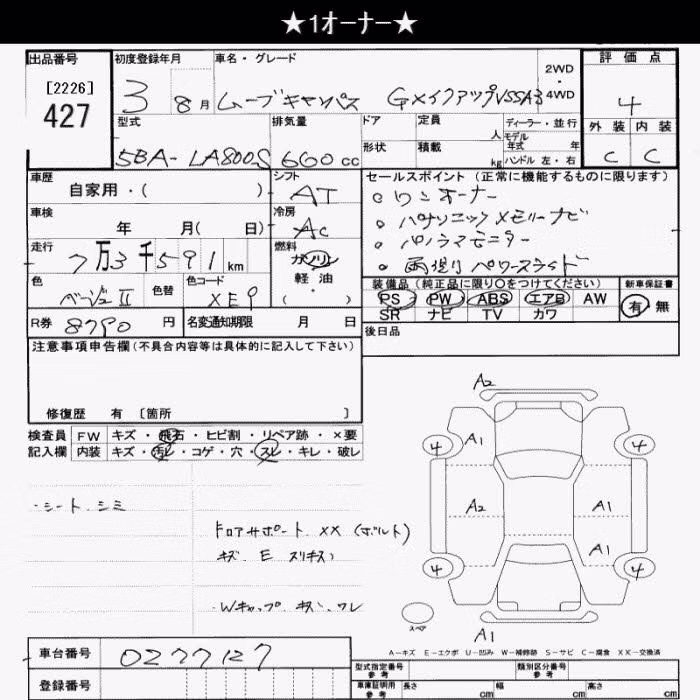 ★1ｵｰﾅｰ★
出品番号 初度登録年月 車名・グレード 評価点
[2226] 2WD
427 3 8月 ムーブキャンバス GXメイクアップVSSA3 ・ 4WD 4
型式 排気量 ドア 定員 人 ディーラー・並行 外装 内装
モデル年式 年
5BA-LA800S 660cc 形状 積載 kg ハンドル 左・右 C C
車歴 シフト セールスポイント (正常に機能するものに限ります)
自家用・( ) AT ○ワンオーナー
車検 冷房 ○パナソニックメモリーナビ
年 月( 日) AC ○パノラマモニター
走行 燃料 ○両側パワースライド
7万3千591km ガソリン
色 色替 色コード 軽油 装備品 (純正品に限り○をつけてください) 新車保証書
ベージュⅡ XE9 ・( ) PS PW ABS エアB AW 有・無
SR ナビ TV カワ
R券 8790 円 名変通知期限 月 日 後日品
注意事項申告欄 (不具合内容等は具体的に記入して下さい)
修復歴 有 〔箇所 〕
検査員 FW キズ・飛石・ヒビ割・リペア跡・×要
記入欄 内装 キズ・汚レ・コゲ・穴・スレ・キレ・破レ
A2
4 A1 4
・シート シミ
A2 A1
ドロアサポート XX (ボルト)
キズ E スリキズ
A1
4 4
・Wキャップ キズ、ワレ
スペア
A1
A-キズ E-エクボ U-凹み W-補修跡 S-サビ C-腐食 XX-交換済
車台番号 0277127 型式指定番号 参考 類別区分番号 参考
登録番号 車庫証明用 参考 長さ cm 幅 cm 高さ cm